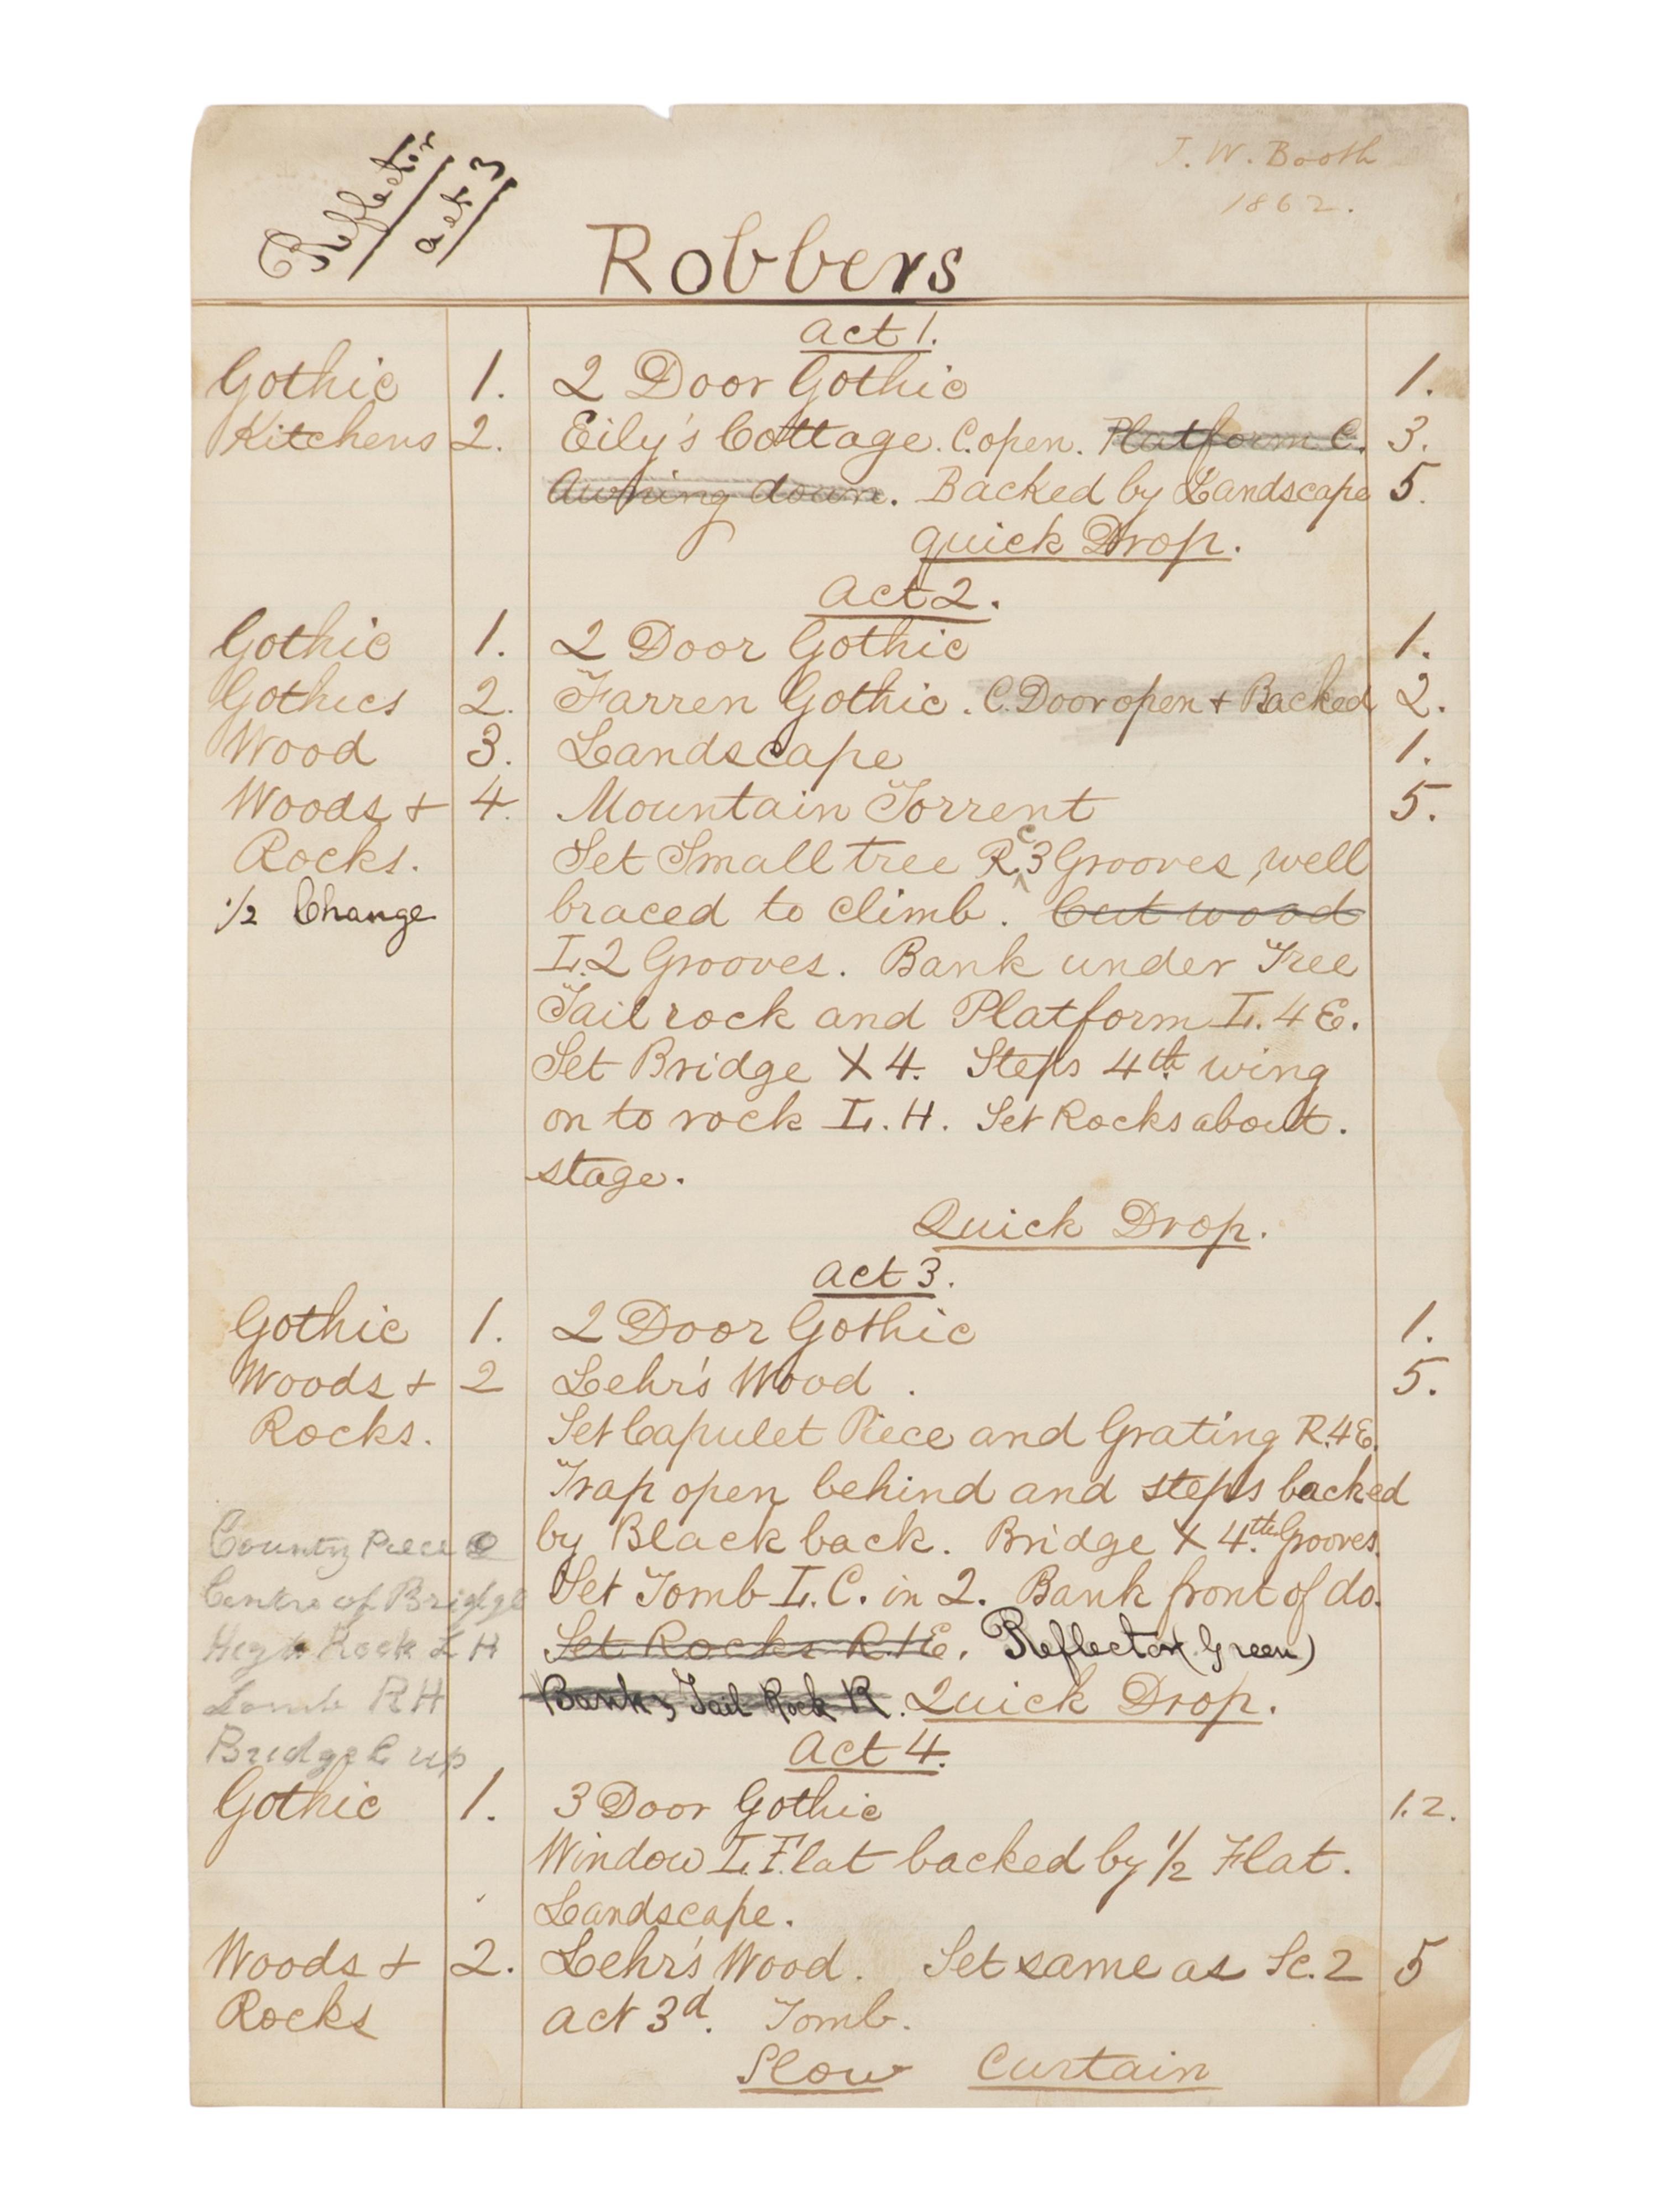 Reflector
act 3
J. W. Booth
1862.
Robbers
Act 1.
Gothic 1. 2 Door Gothic 1.
Kitchens 2. Eily's Cottage. C. open. Platform C. 3.
Awning down. Backed by Landscape 5.
quick Drop.
Act 2.
Gothic 1. 2 Door Gothic 1.
Gothics 2. Farren Gothic. C. Door open + Backed 2.
Wood 3. Landscape 1.
Woods + 4. Mountain Torrent 5.
Rocks. Set Small tree R.C 3 Grooves, well
1/2 Change braced to climb. Cut wood
L. 2 Grooves. Bank under Tree
Tail rock and Platform L. 4 E.
Set Bridge X 4. Steps 4th wing
on to rock L. H. Set Rocks about.
stage.
Quick Drop.
Act 3.
Gothic 1. 2 Door Gothic 1.
Woods + 2 Lehr's Wood. 5.
Rocks. Set Capulet Piece and Grating R. 4 E.
Trap open behind and steps backed
Country Piece by Black back. Bridge X 4.th Grooves.
Centre of Bridge Set Tomb L. C. in 2. Bank front of do.
High Rock L H Set Rocks R. 1 E. Reflector (Green)
Tomb R H Bank, Tail Rock R. Quick Drop.
Bridge C up Act 4.
Gothic 1. 3 Door Gothic 1. 2.
Window L. Flat backed by 1/2 Flat.
Landscape.
Woods + 2. Lehr's Wood. Set same as Sc. 2 5
Rocks act 3d. Tomb.
Slow Curtain